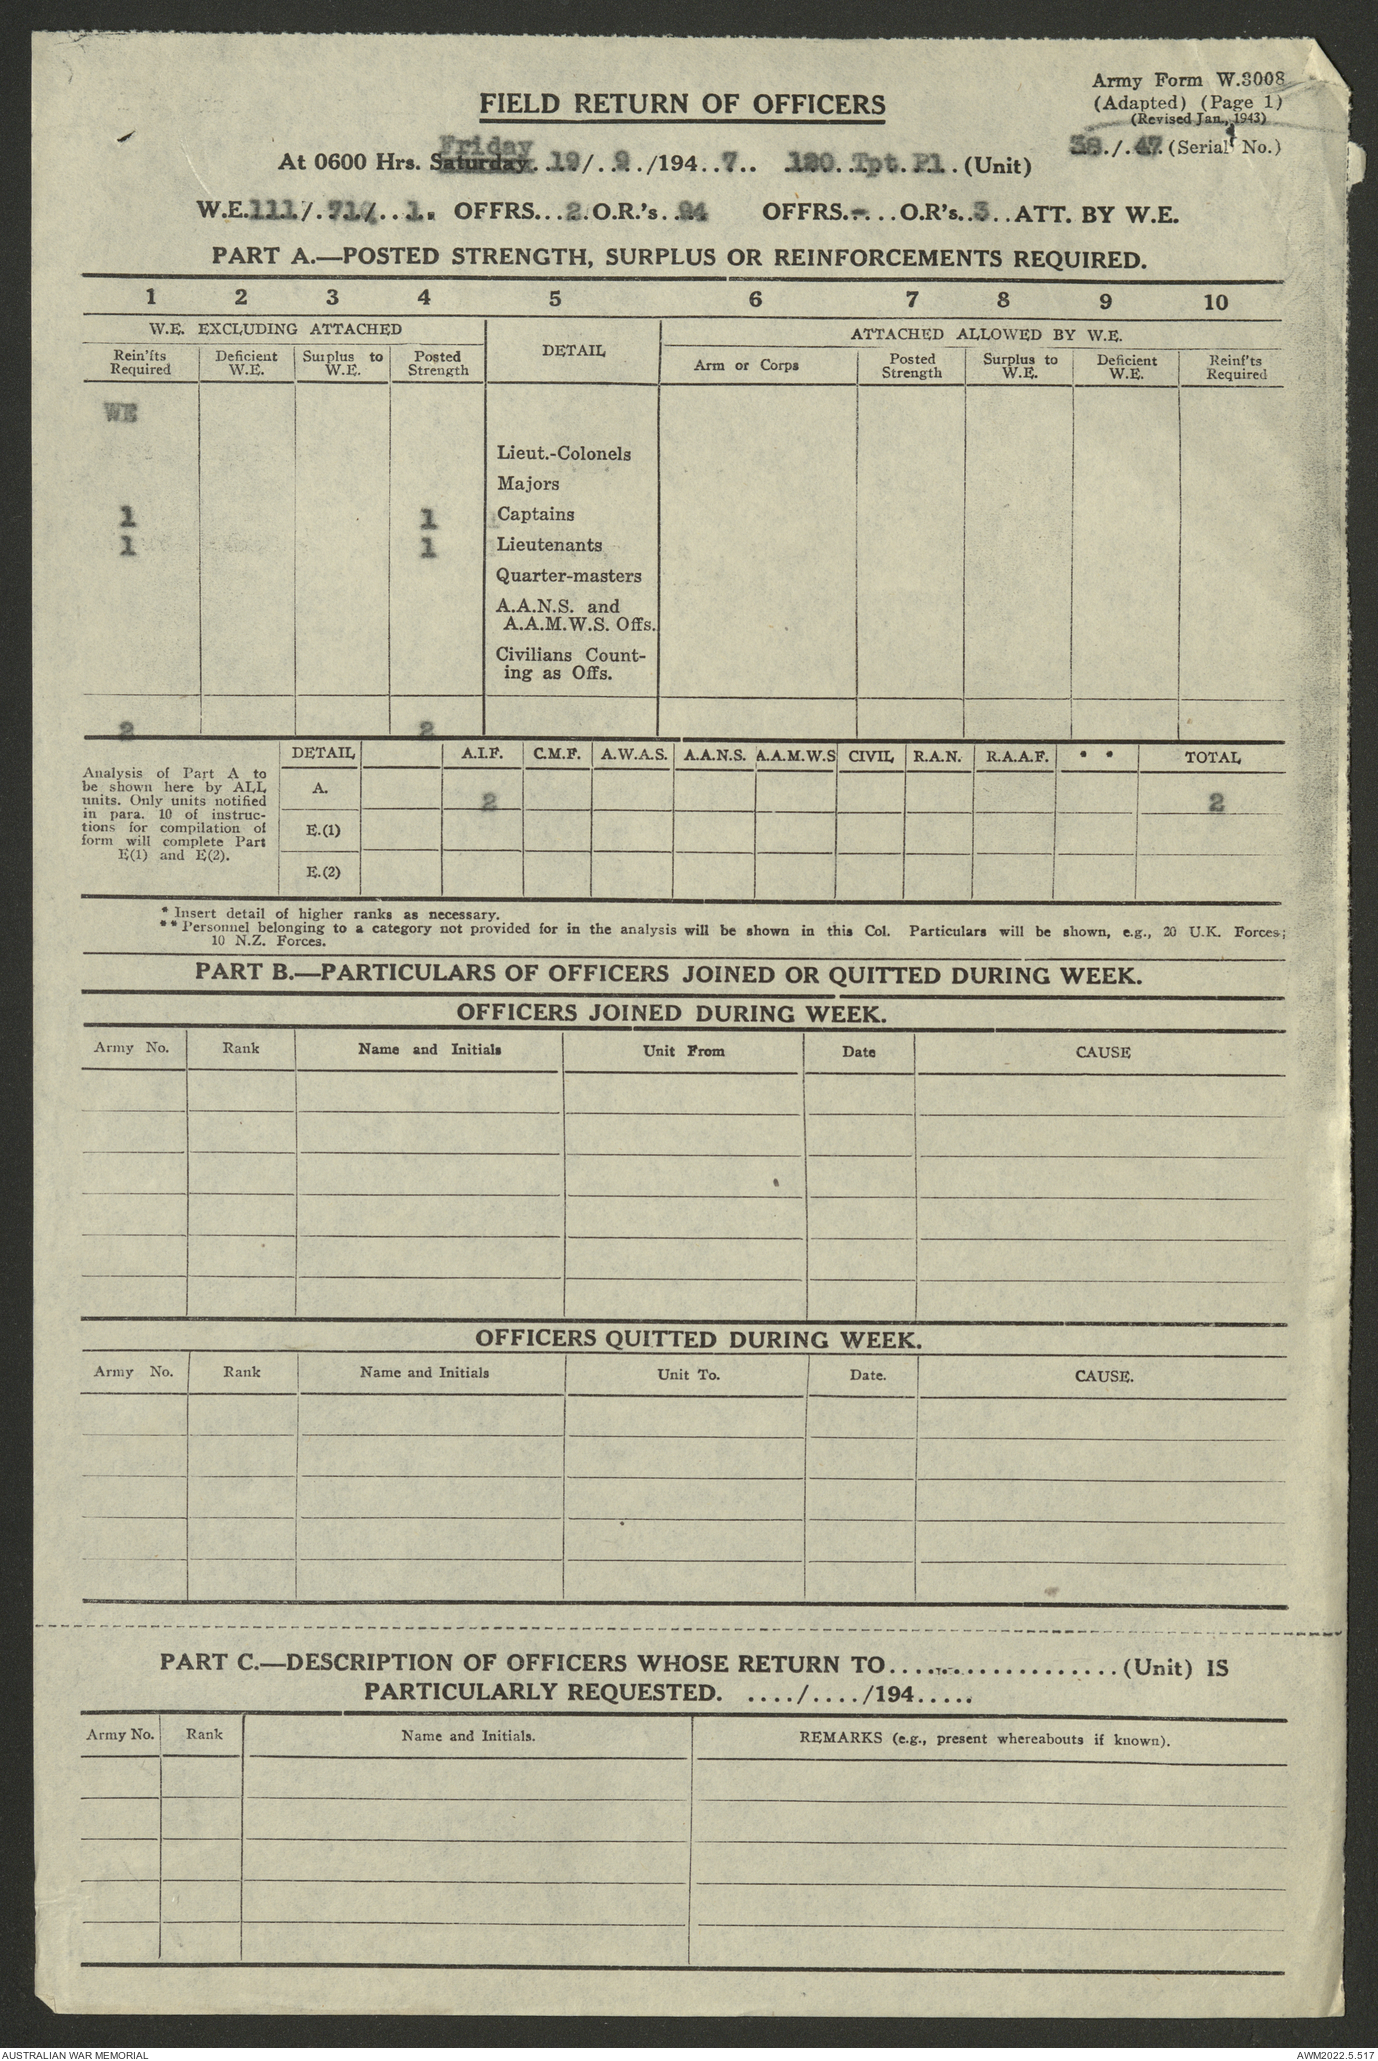 Army Form W.3008
(Adapted) (Page 1)
(Revised Jan., 1943)
38./.47.(Serial No.)
FIELD RETURN OF OFFICERS
Friday
At 0600 Hrs. Saturday. 19/. .9. ./194. .7. . .120. .Tpt. Pl. . (Unit)
W.E.111/.71./. .1. OFFRS. . .2.O.R.'s. .94 OFFRS.-. . .O.R's. .3. .ATT. BY W.E.
PART A.—POSTED STRENGTH, SURPLUS OR REINFORCEMENTS REQUIRED.
1 2 3 4 5 6 7 8 9 10
W.E. EXCLUDING ATTACHED DETAIL ATTACHED ALLOWED BY W.E.
Rein'fts Required Deficient W.E. Surplus to W.E. Posted Strength Arm or Corps Posted Strength Surplus to W.E. Deficient W.E. Reinf'ts Required
WE
Lieut.-Colonels
Majors
1 1 Captains
1 1 Lieutenants
Quarter-masters
A.A.N.S. and
A.A.M.W.S. Offs.
Civilians Count-
ing as Offs.
2 2
DETAIL A.I.F. C.M.F. A.W.A.S. A.A.N.S. A.A.M.W.S CIVIL R.A.N. R.A.A.F. * * TOTAL
Analysis of Part A to
be shown here by ALL
units. Only units notified
in para. 10 of instruc-
tions for compilation of
form will complete Part
E(1) and E(2).
A. 2 2
E.(1)
E.(2)
* Insert detail of higher ranks as necessary.
** Personnel belonging to a category not provided for in the analysis will be shown in this Col. Particulars will be shown, e.g., 20 U.K. Forces;
10 N.Z. Forces.
PART B.—PARTICULARS OF OFFICERS JOINED OR QUITTED DURING WEEK.
OFFICERS JOINED DURING WEEK.
Army No. Rank Name and Initials Unit From Date CAUSE
OFFICERS QUITTED DURING WEEK.
Army No. Rank Name and Initials Unit To. Date. CAUSE.
PART C.—DESCRIPTION OF OFFICERS WHOSE RETURN TO.....................(Unit) IS
PARTICULARLY REQUESTED. ..../..../194.....
Army No. Rank Name and Initials. REMARKS (e.g., present whereabouts if known).
AUSTRALIAN WAR MEMORIAL AWM2022.5.517